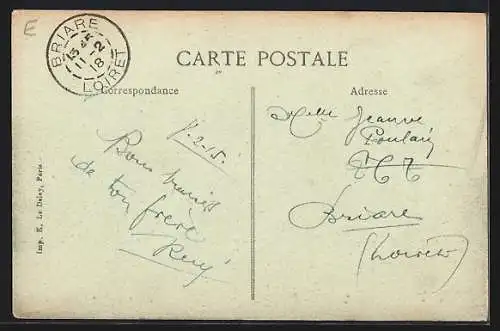 E
BRIARE
13 45
11-2
18
LOIRET
CARTE POSTALE
Correspondance
Adresse
8-2-18.
Bons baisers
de ton frère
René
Melle Jeanne
Poulain
Briare
(Loiret)
Imp. E. Le Deley, Paris